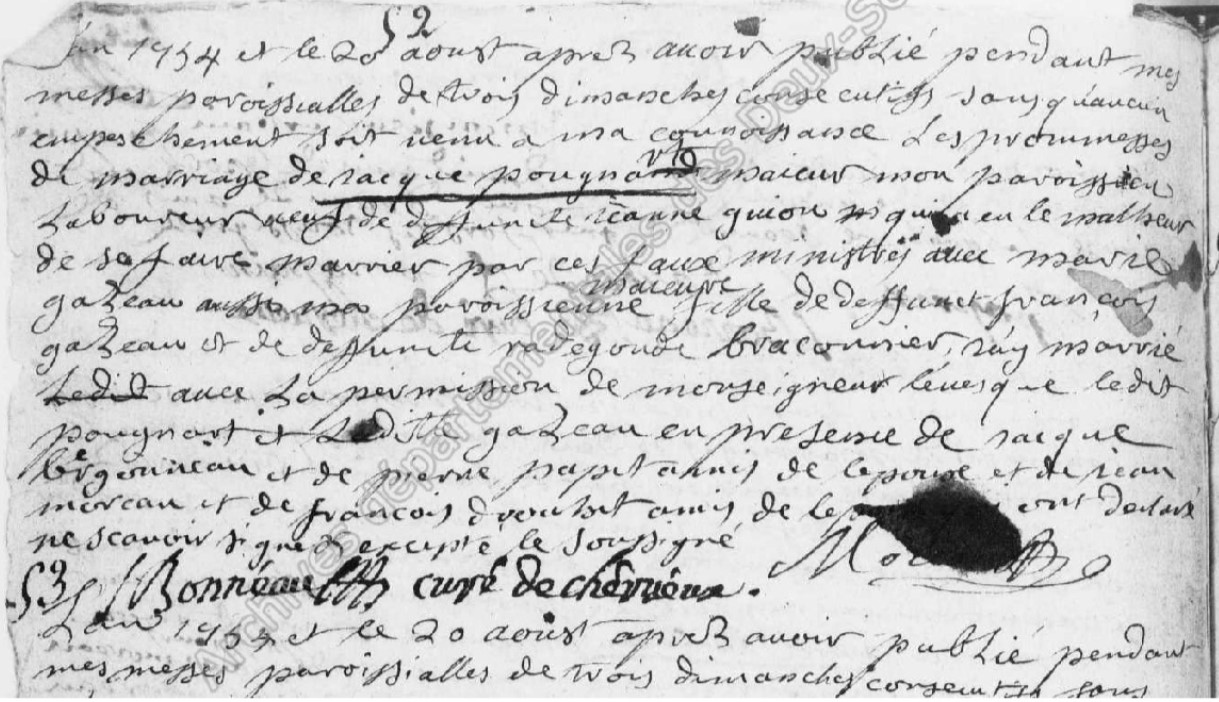 52
L'an 1754 et le 20 aoust aprez avoir publié pendant mes
messes paroissialles de trois dimanches consecutifs sans qu'aucun
empeschement soit venu a ma connoissance Les prommesses
de marriage de jacque pougnard maieur mon paroissien
Laboureur veuf de deffuncte jeanne guion qui a eu le malheur
de se faire marrier par ces faux ministres avec marie
gazeau aussi ma paroissienne maieure fille de deffunct françois
gazeau et de deffuncte radegonde braconnier, j'ay marrié
Ledit avec La permission de monseigneur l'evesque ledit
pougnart et Ladite gazeau en presence de jacque
bergonneau et de pierre papit amis de lepoux et de jean
moreau et de françois drouhet amis de le ont declaré
ne scavoir signer excepté le soussigné
53 Bonneau curé de cherveux.
L'an 1754 et le 20 aoust aprez avoir publié pendant
mes messes paroissialles de trois dimanches consecutifs sans
Archives départementales des Deux-Sè